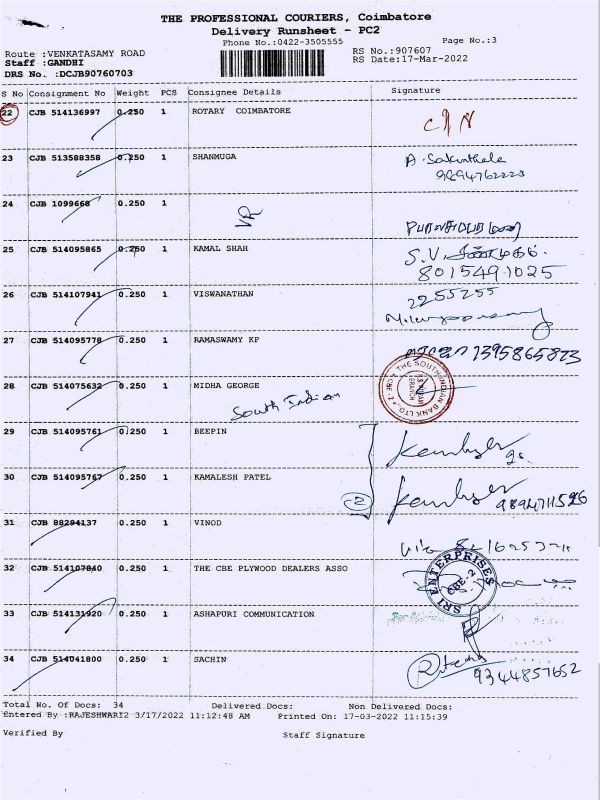 THE PROFESSIONAL COURIERS, Coimbatore
Delivery Runsheet - PC2
Phone No.:0422-3505555 Page No.:3
Route :VENKATASAMY ROAD RS No.:907607
Staff :GANDHI RS Date:17-Mar-2022
DRS No. :DCJB90760703
S No Consignment No Weight PCS Consignee Details Signature
22 CJB 514136997 0.250 1 ROTARY COIMBATORE
23 CJB 513588358 0.250 1 SHANMUGA A. Sakunthala
9894762223
24 CJB 1099668 0.250 1
25 CJB 514095865 0.250 1 KAMAL SHAH S.V.
8015491025
26 CJB 514107941 0.250 1 VISWANATHAN 2255255
27 CJB 514095778 0.250 1 RAMASWAMY KP 7395865873
28 CJB 514075632 0.250 1 MIDHA GEORGE THE SOUTH INDIAN BANK LTD.
South Indian
29 CJB 514095761 0.250 1 BEEPIN
30 CJB 514095767 0.250 1 KAMALESH PATEL
31 CJB 88294137 0.250 1 VINOD
32 CJB 514107840 0.250 1 THE CBE PLYWOOD DEALERS ASSO SRI ENTERPRISES CBE-2
33 CJB 514131920 0.250 1 ASHAPURI COMMUNICATION
34 CJB 514041800 0.250 1 SACHIN 9344857652
Total No. Of Docs: 34 Delivered Docs: Non Delivered Docs:
Entered By :RAJESHWARI2 3/17/2022 11:12:48 AM Printed On: 17-03-2022 11:15:39
Verified By Staff Signature